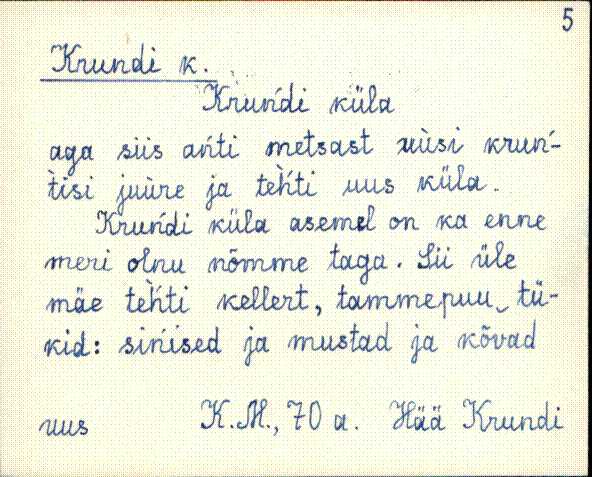 5
Krundi k.
Kruńdi küla
aga siis ańti metsast uùsi kruń-
tisi juùre ja teh̀ti uus küla.
Kruńdi küla asemel on ka enne
meri olnu nõmme taga. Sii üle
mäe teh̀ti kellert, tammepuu tü-
kid: sińised ja mustad ja kõvad
uus K.M., 70 a. Hää Krundi